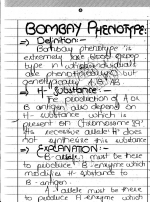 BOMBAY PHENOTYPE:
⇒ Definition:-
Bombay phenotype is
extremely rare blood group
type in which individuals
are phenotypically O but
genetically A, B, AB
⇒ H- Substance:-
The production of A or
B antigen also depend on
H- substance which is
present on Chromosome 19.
Its recessive allele 'H' does
not synthesise this substance
⇒ EXPLANATION:-
B-allele must be there
to produce B-enzyme which
modifies H-substance to
B-antigen.
A allele must be there
to produce A enzyme which